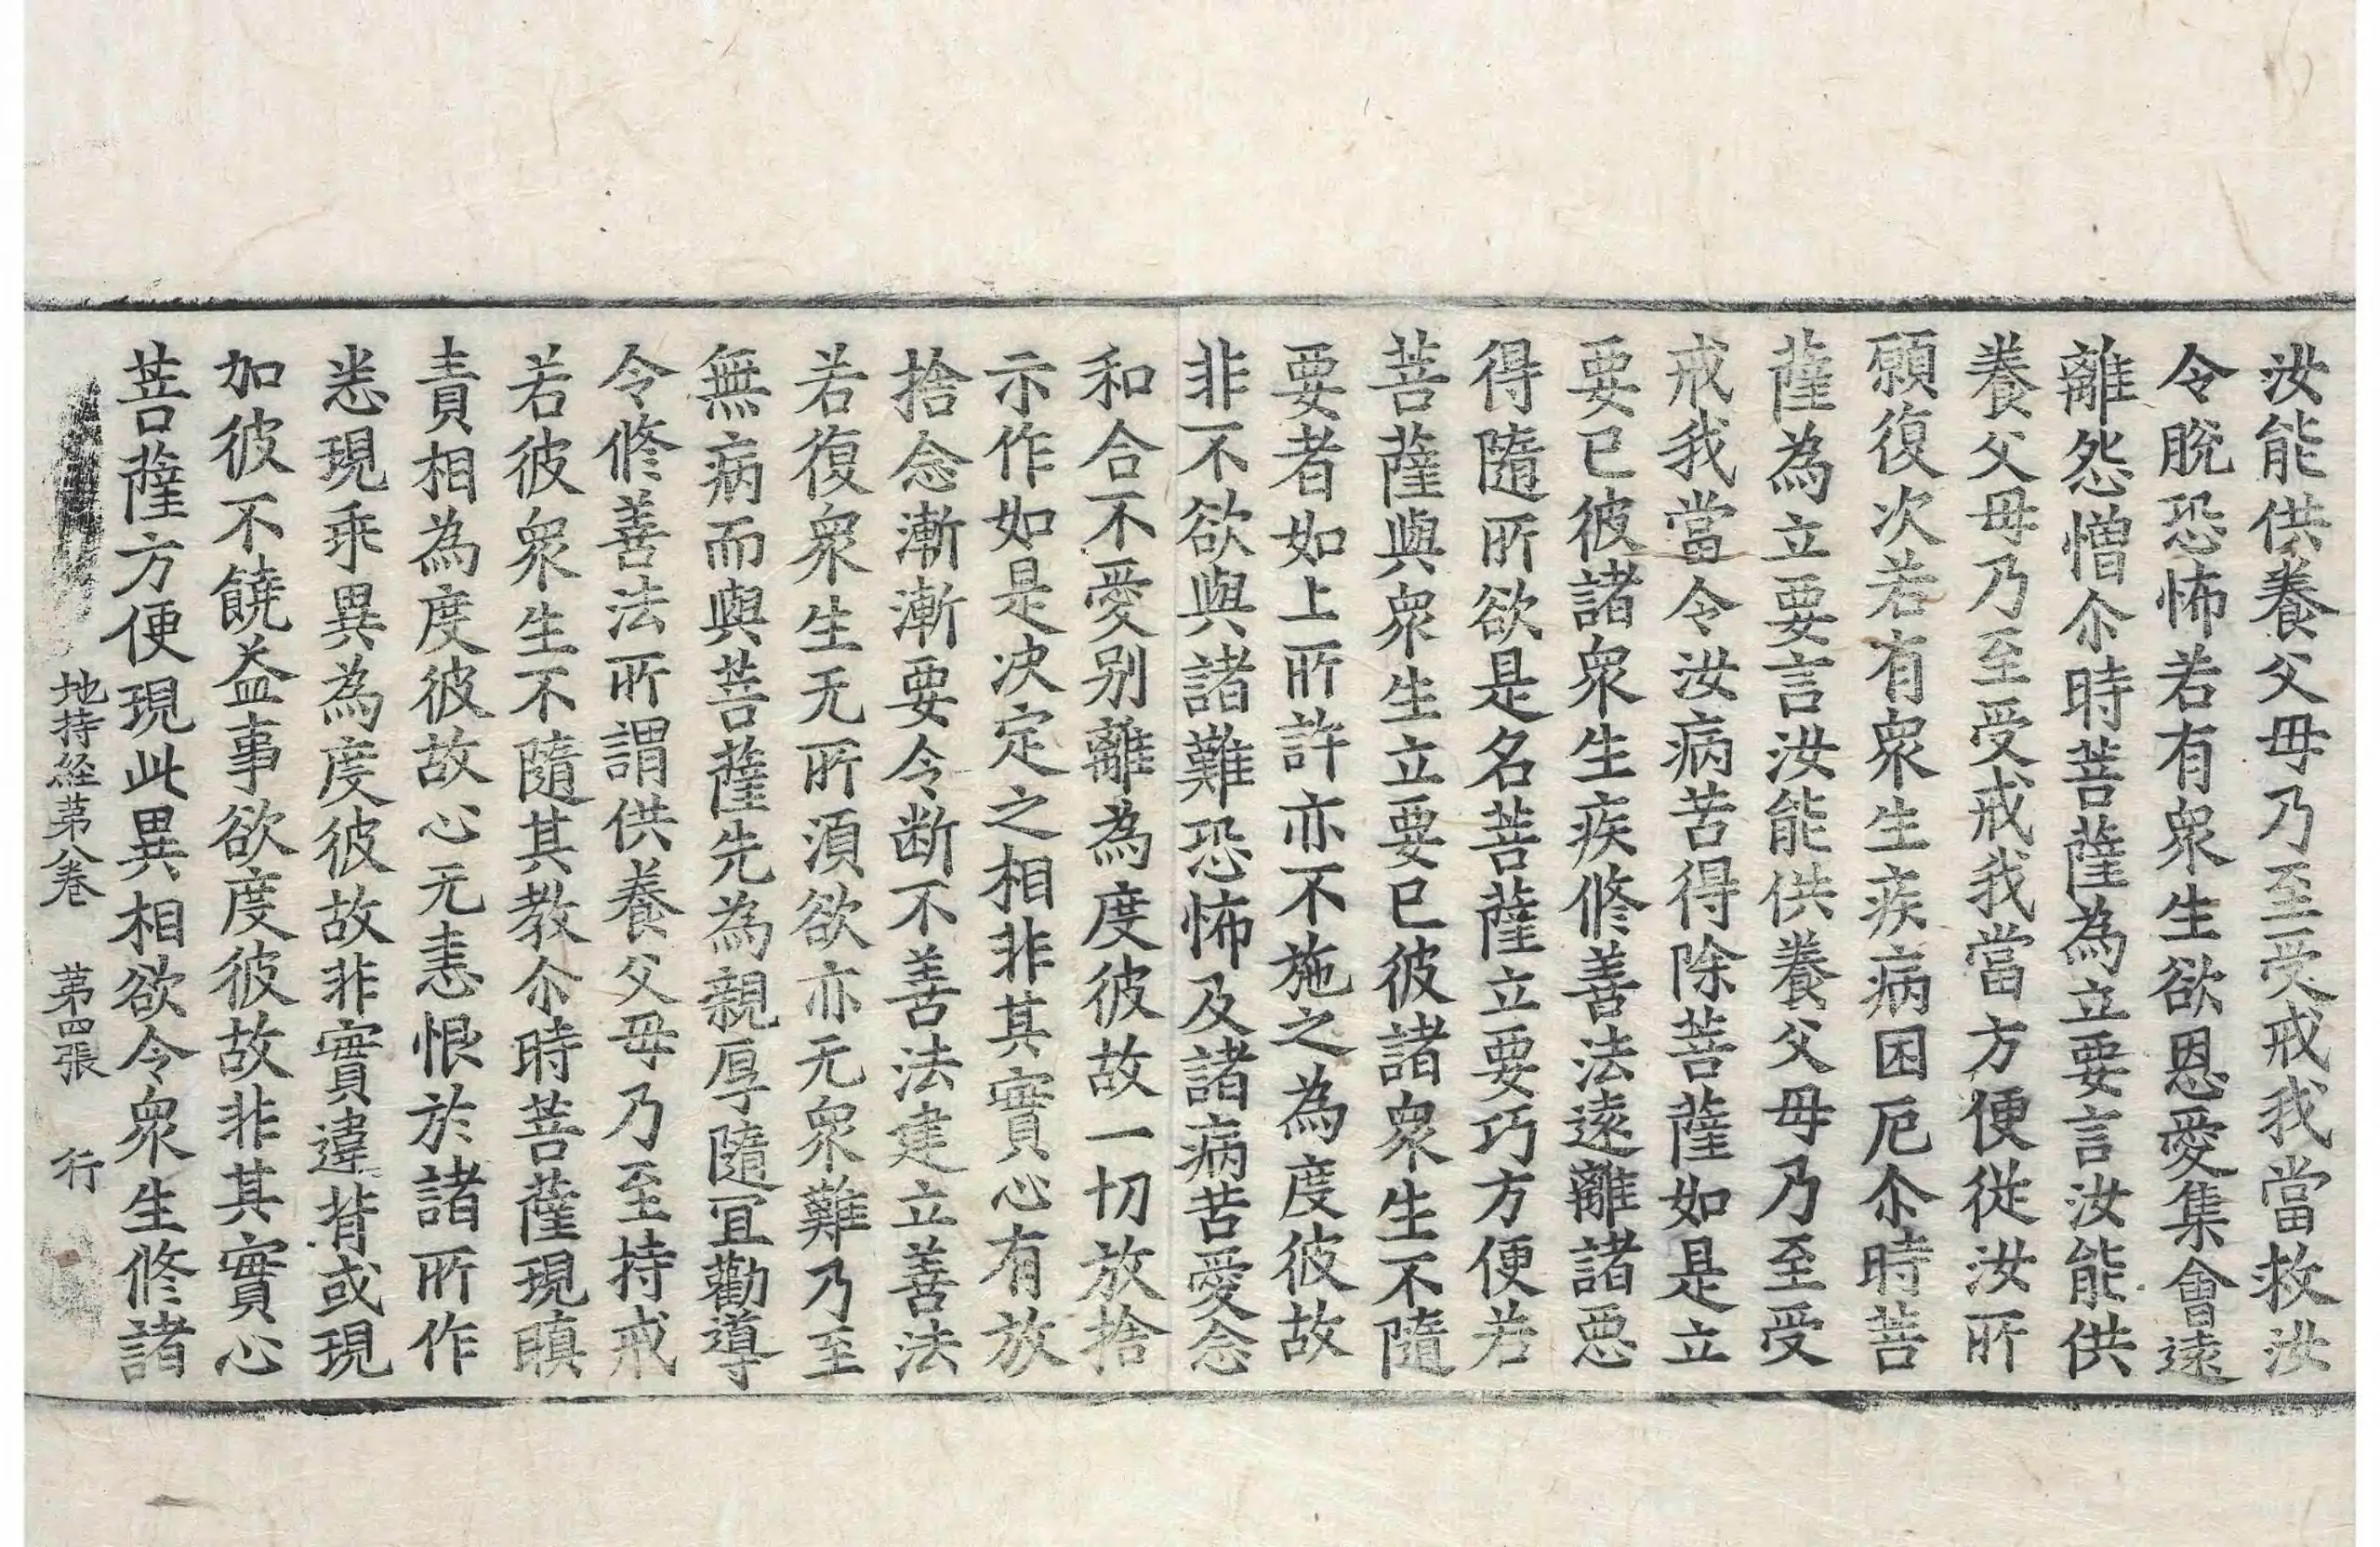 汝能供養父母乃至受戒我當救汝
令脫恐怖若有衆生欲恩愛集會遠
離怨憎尒時菩薩為立要言汝能供
養父母乃至受戒我當方便従汝所
願復次若有衆生疾病困厄尒時菩
薩為立要言汝能供養父母乃至受
戒我當令汝病苦得除菩薩如是立
要已彼諸衆生疾修善法遠離諸惡
得隨所欲是名菩薩立要巧方便若
菩薩與衆生立要已彼諸衆生不隨
要者如上所許亦不施之為度彼故
非不欲與諸難恐怖及諸病苦愛念
和合不愛别離為度彼故一切放捨
示作如是决定之相非其實心有放
捨念漸漸要令断不善法建立善法
若復衆生无所湏欲亦无衆難乃至
無病而與菩薩先為親厚隨冝勸導
令修善法所謂供養父母乃至持戒
若彼衆生不隨其教尒時菩薩現瞋
責相為度彼故心无恚恨於諸所作
悉現乖異為度彼故非實違背或現
加彼不饒益事欲度彼故非其實心
菩薩方便現此異相欲令衆生修諸
地持経第八卷 第四張 行